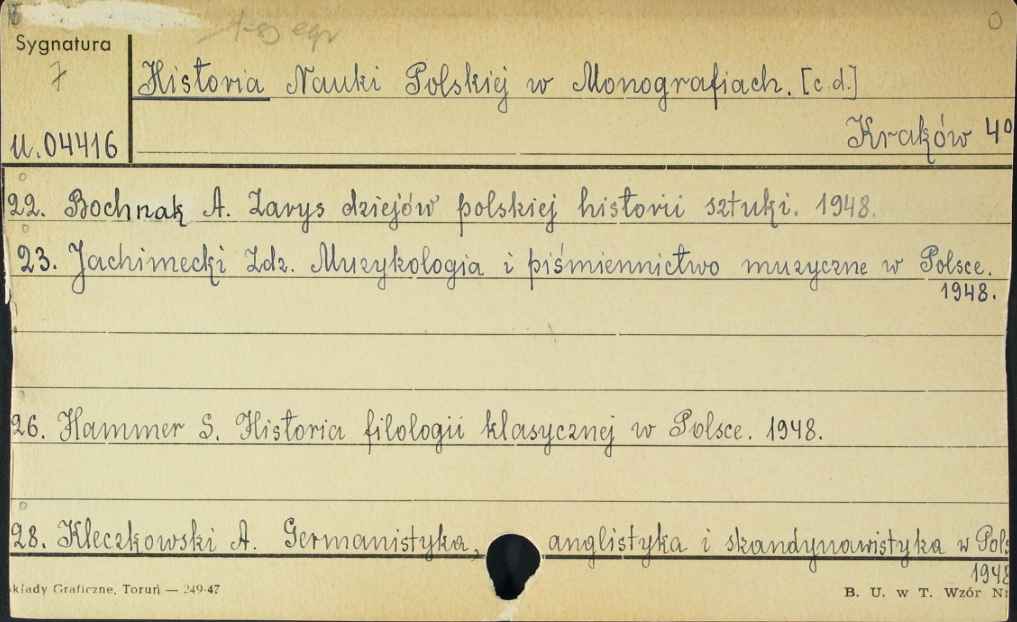 Sygnatura
7
Historia Nauki Polskiej w Monografiach. [c.d.]
Kraków 4º
U.04416
22. Bochnak A. Zarys dziejów polskiej historii sztuki. 1948.
23. Jachimecki Zdz. Muzykologia i piśmiennictwo muzyczne w Polsce.
1948.
26. Hammer S. Historia filologii klasycznej w Polsce. 1948.
28. Kleczkowski A. Germanistyka, anglistyka i skandynawistyka w Pols
1948
kłady Graficzne, Toruń — 249-47
B. U. w T. Wzór Nr